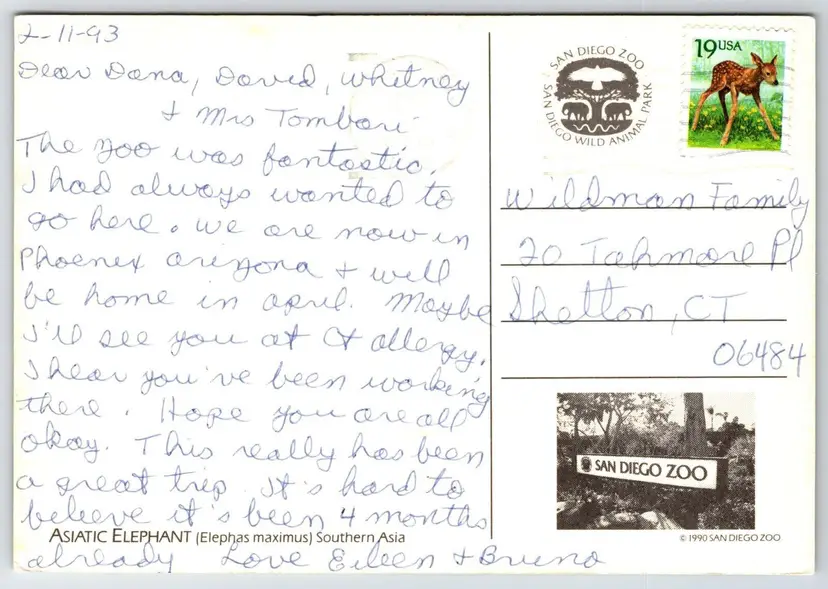 2-11-93
Dear Dana, David, Whitney
+ Mrs Tombari
The zoo was fantastic.
I had always wanted to
go here. We are now in
Phoenex arizona + will
be home in april. Maybe
I'll see you at Ct allergy.
I hear you've been working
there. Hope you are all
okay. This really has been
a great trip. It's hard to
believe it's been 4 months
already Love Eileen + Bruno
ASIATIC ELEPHANT (Elephas maximus) Southern Asia
SAN DIEGO ZOO
SAN DIEGO WILD ANIMAL PARK
19USA
Wildman Family
20 Tahmore Pl
Shelton, CT
06484
SAN DIEGO ZOO
© 1990 SAN DIEGO ZOO